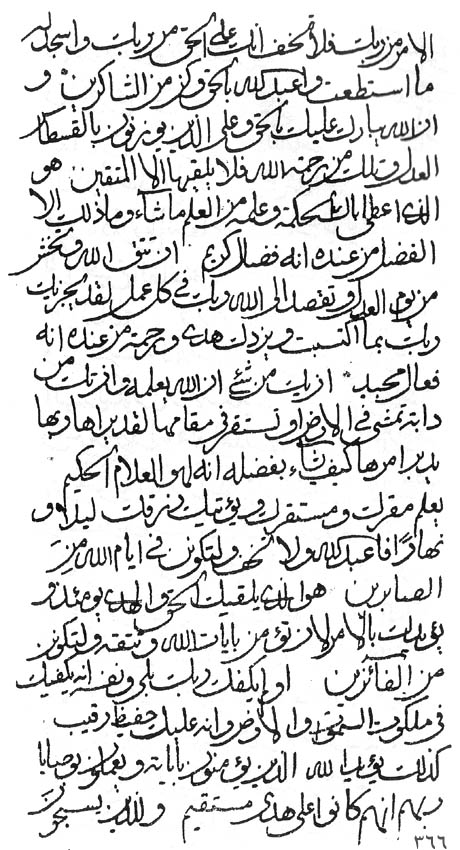 الامر من ربك فلا تخف انك على الحق من ربك واسجد له
ما استطعت واعبد الله بالحق وكن من الشاكرين و
ان الله يبارك عليك بالحق وعلى الذين يوزنون بالقسطاس
العدل وتلك من رحمة الله فلا يلقيها الا المتقين هو
الذي اعطى بالحكمة وعلمه من العلم ما شاء وما ذلك الا
الفضل من عنده انه فضال كريم ان تتق الله وتخش
من يوم العدل وتقصد الى الله ربك في كل عمل لقد يجزيك
ربك بما اكتسبت ويزدك هدى ورحمة من عنده انه
فعال مجيد ان يك من شئ ان الله يعلمه وان تك من
دابة تمشي في الارض او تستقر في مقامها لقد يراها وبها
يدبر امرها كيف شاء بفضله انه لهو العلام الحكيم
يعلم مقرك ومستقرك ويؤتيك رزقك ليلا و
نهارًا فاعبد الله ولا تهن ولتكونن في ايام الله من
الصابرين هو الذي يلقيك الحق والهدى يومئذ و
يؤيدك بالامر لان تؤمن بايات الله وتتقه ولتكونن
من الفائزين او لم يكفك ربك بلى ونفسه انه يكفيك
في ملكوت السموات والارض وانه عليك حفيظ رقيب
كذلك يؤيد الله الذين يؤمنون باياته ويعملون بوصايا
ربهم انهم كانوا على هدى مستقيم والذين يسبحون
٣٦٦